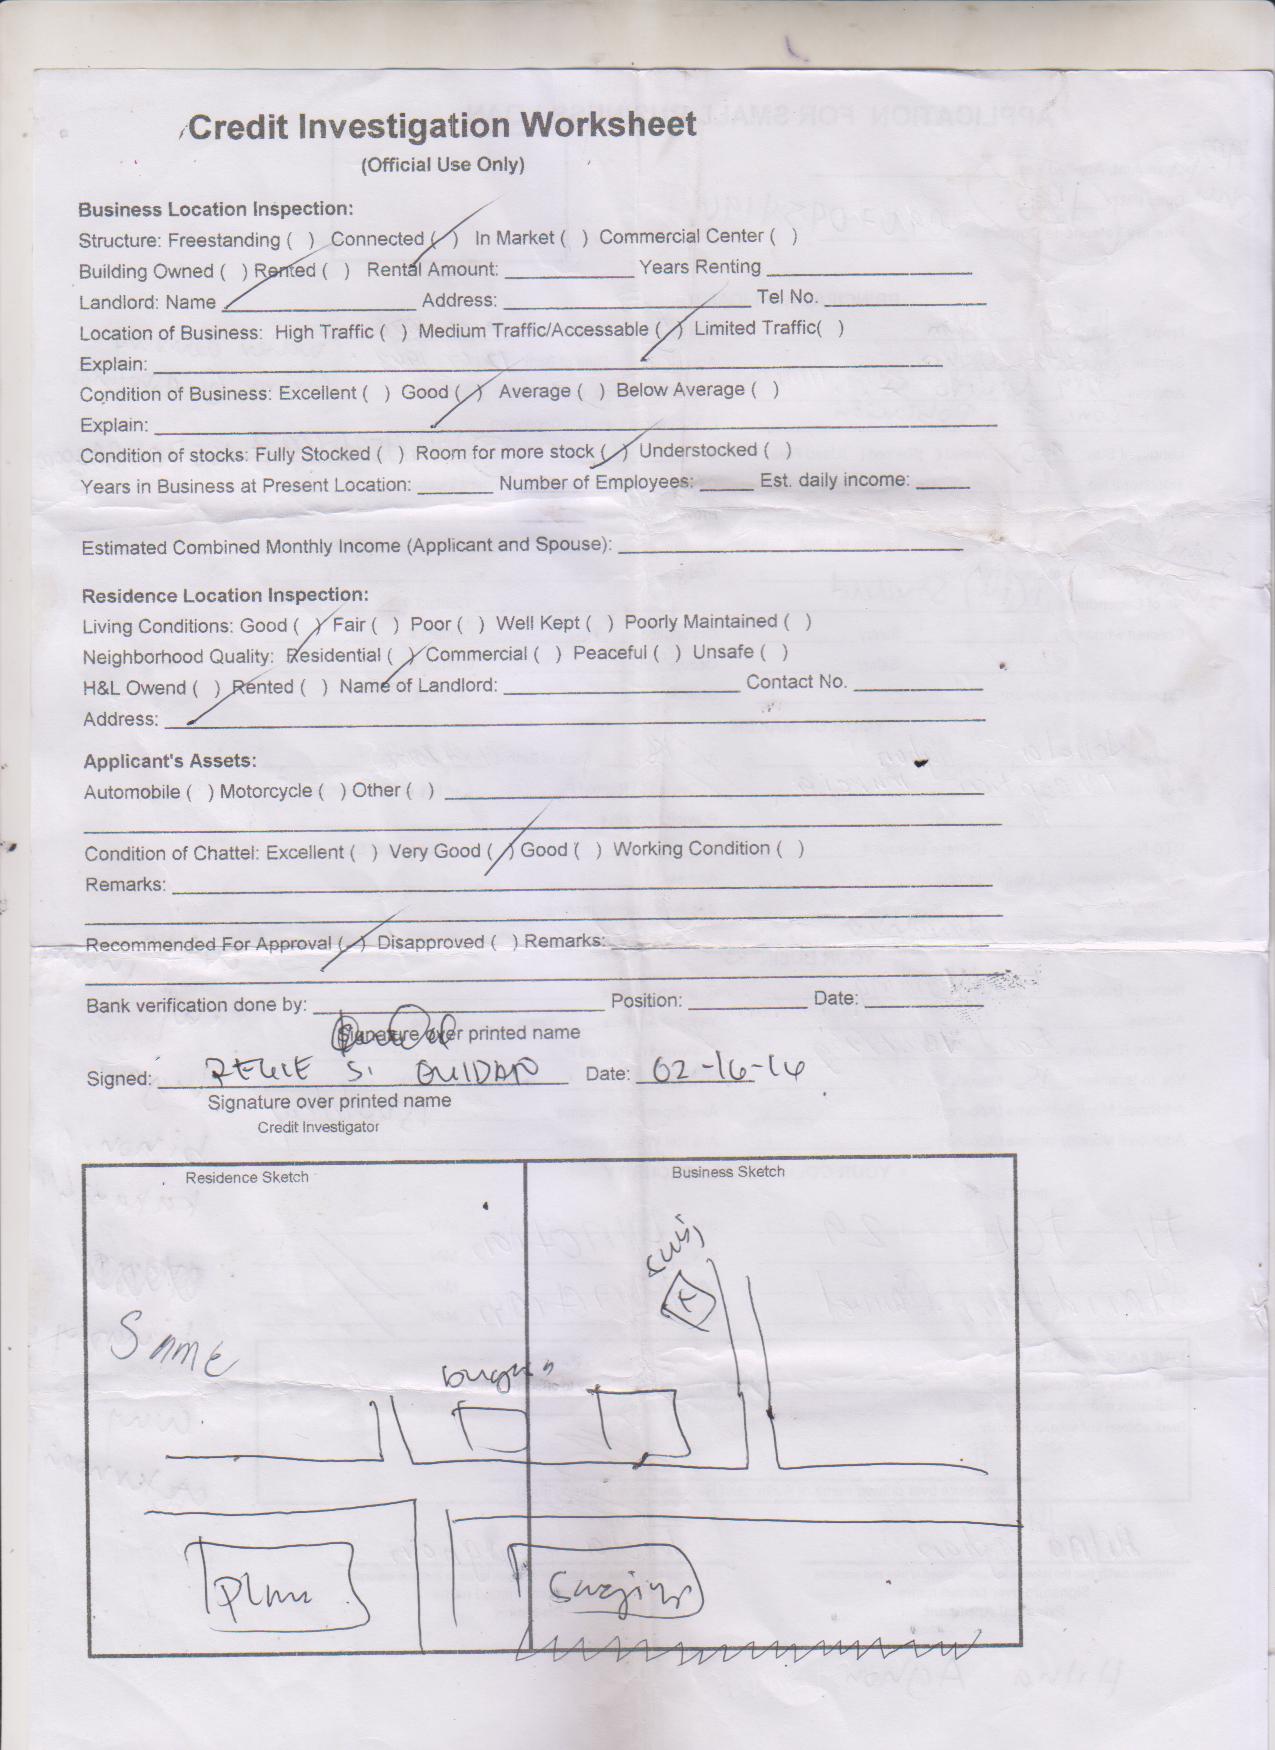 Credit Investigation Worksheet
(Official Use Only)
Business Location Inspection:
Structure: Freestanding ( ) Connected (/) In Market ( ) Commercial Center ( )
Building Owned ( ) Rented ( ) Rental Amount: ____________ Years Renting ____________
Landlord: Name ____________ Address: ____________ Tel No. ____________
Location of Business: High Traffic ( ) Medium Traffic/Accessable (/) Limited Traffic( )
Explain: ____________
Condition of Business: Excellent ( ) Good (/) Average ( ) Below Average ( )
Explain: ____________
Condition of stocks: Fully Stocked ( ) Room for more stock (/) Understocked ( )
Years in Business at Present Location: _______ Number of Employees: _____ Est. daily income: _____
Estimated Combined Monthly Income (Applicant and Spouse): ____________
Residence Location Inspection:
Living Conditions: Good (/) Fair ( ) Poor ( ) Well Kept ( ) Poorly Maintained ( )
Neighborhood Quality: Residential (/) Commercial ( ) Peaceful ( ) Unsafe ( )
H&L Owend ( ) Rented ( ) Name of Landlord: ____________ Contact No. ____________
Address: ____________
Applicant's Assets:
Automobile ( ) Motorcycle ( ) Other ( ) ____________
Condition of Chattel: Excellent ( ) Very Good (/) Good ( ) Working Condition ( )
Remarks: ____________
Recommended For Approval (/) Disapproved ( ) Remarks: ____________
Bank verification done by: ____________ Position: ____________ Date: ____________
Signature over printed name
Signed: ____________ Date: 02-16-16
Signature over printed name
Credit Investigator
Residence Sketch Business Sketch
Same